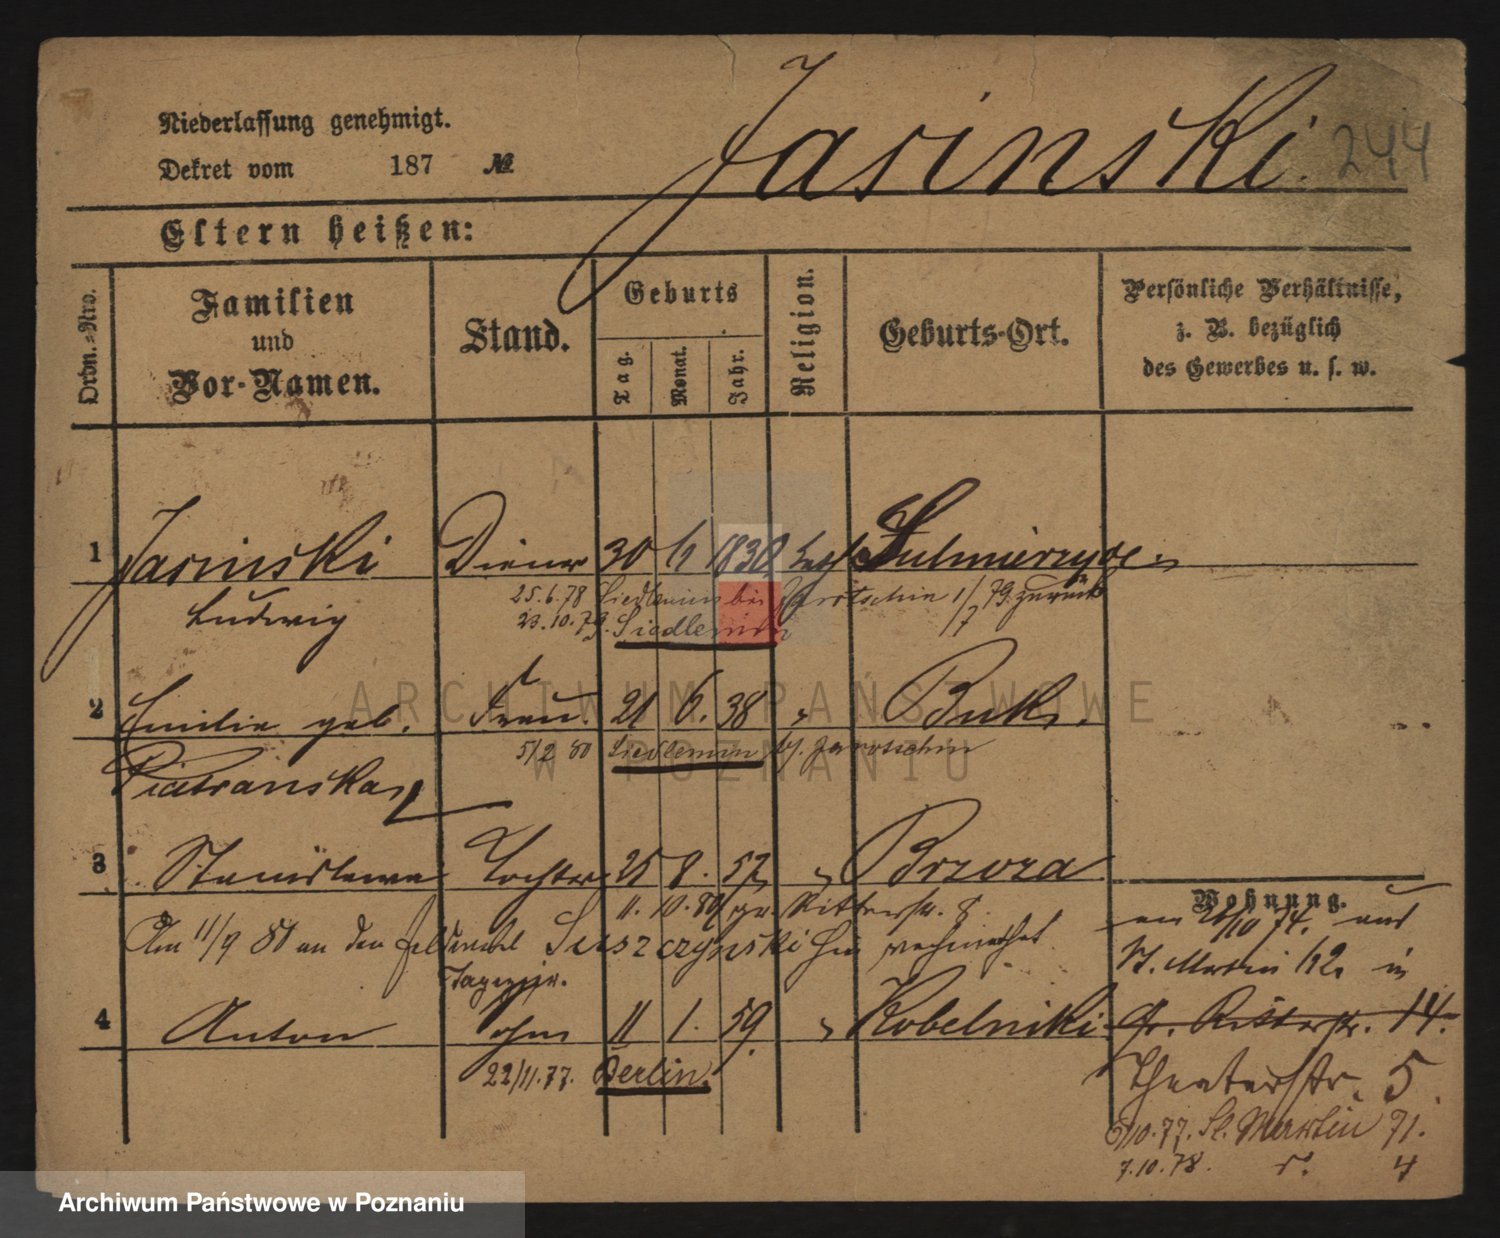 Niederlassung genehmigt.
Dekret vom 187 №
Jasinski. 244
Eltern heißen:
Ordn.-Nro.
Familien und Vor-Namen.
Stand.
Geburts
Tag. Monat. Jahr.
Religion.
Geburts-Ort.
Persönliche Verhältnisse, z. B. bezüglich des Gewerbes u. s. w.
1 Jasinski Diener 30 1830 kath Sulmierzyce
Ludwig
25.6.78 Siedlemin bei Jarotschin 1/7 79. zurück
23.10.79. Siedlemin
2 Emilie geb. Frau. 21 6. 38 " Buk.
5/2 80 Siedlemin b/. Jarotschin
Pietranska
3 Stanislawa Tochter 25 8. 57 " Brzoza
11.10.80 gr. Ritterstr. 8.
Am 11/9 80 an den Suszczynski
Tapezier.
4 Anton Sohn 11 1. 59. " Kobelniki
22/11.77. Berlin.
Wohnung.
am 10 74. aus
St. Martin 62 in
Gr. Ritterstr. 14.
Theaterstr. 5.
6/10.77. St. Martin 71.
7.10.78. 4
ARCHIWUM PAŃSTWOWE
W POZNANIU
Archiwum Państwowe w Poznaniu